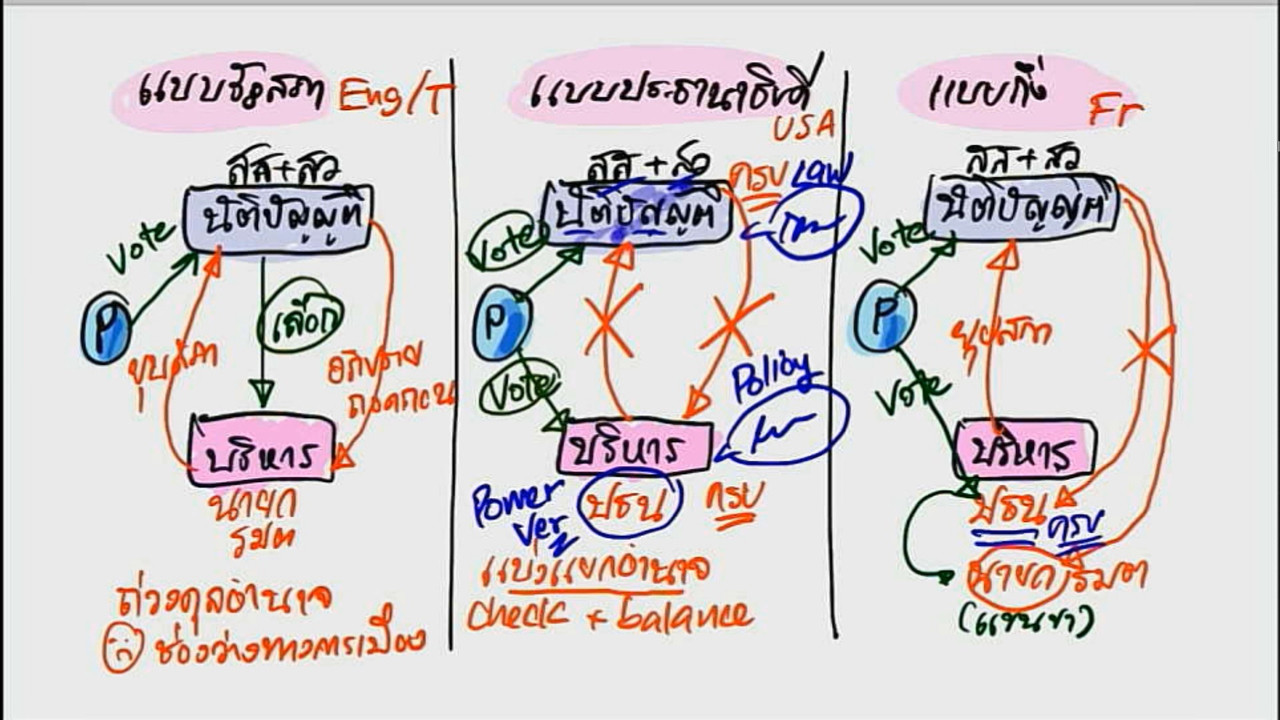 แบบรัฐสภา Eng/T
สส+สว
นิติบัญญัติ
Vote
P
เลือก
ยุบสภา
อภิปราย
ถอดถอน
บริหาร
นายก
รมต
ถ่วงดุลอำนาจ
ช่องว่างทางการเมือง
แบบประธานาธิบดี
USA
สส + สว
นิติบัญญัติ
ครบ Law
Vote
P
Vote
Policy
บริหาร
Power
Ver
ปธน
ครบ
แบ่งแยกอำนาจ
check + balance
แบบกึ่ง
Fr
สส + สว
นิติบัญญัติ
Vote
P
ยุบสภา
Vote
บริหาร
ปธน ครบ
นายก